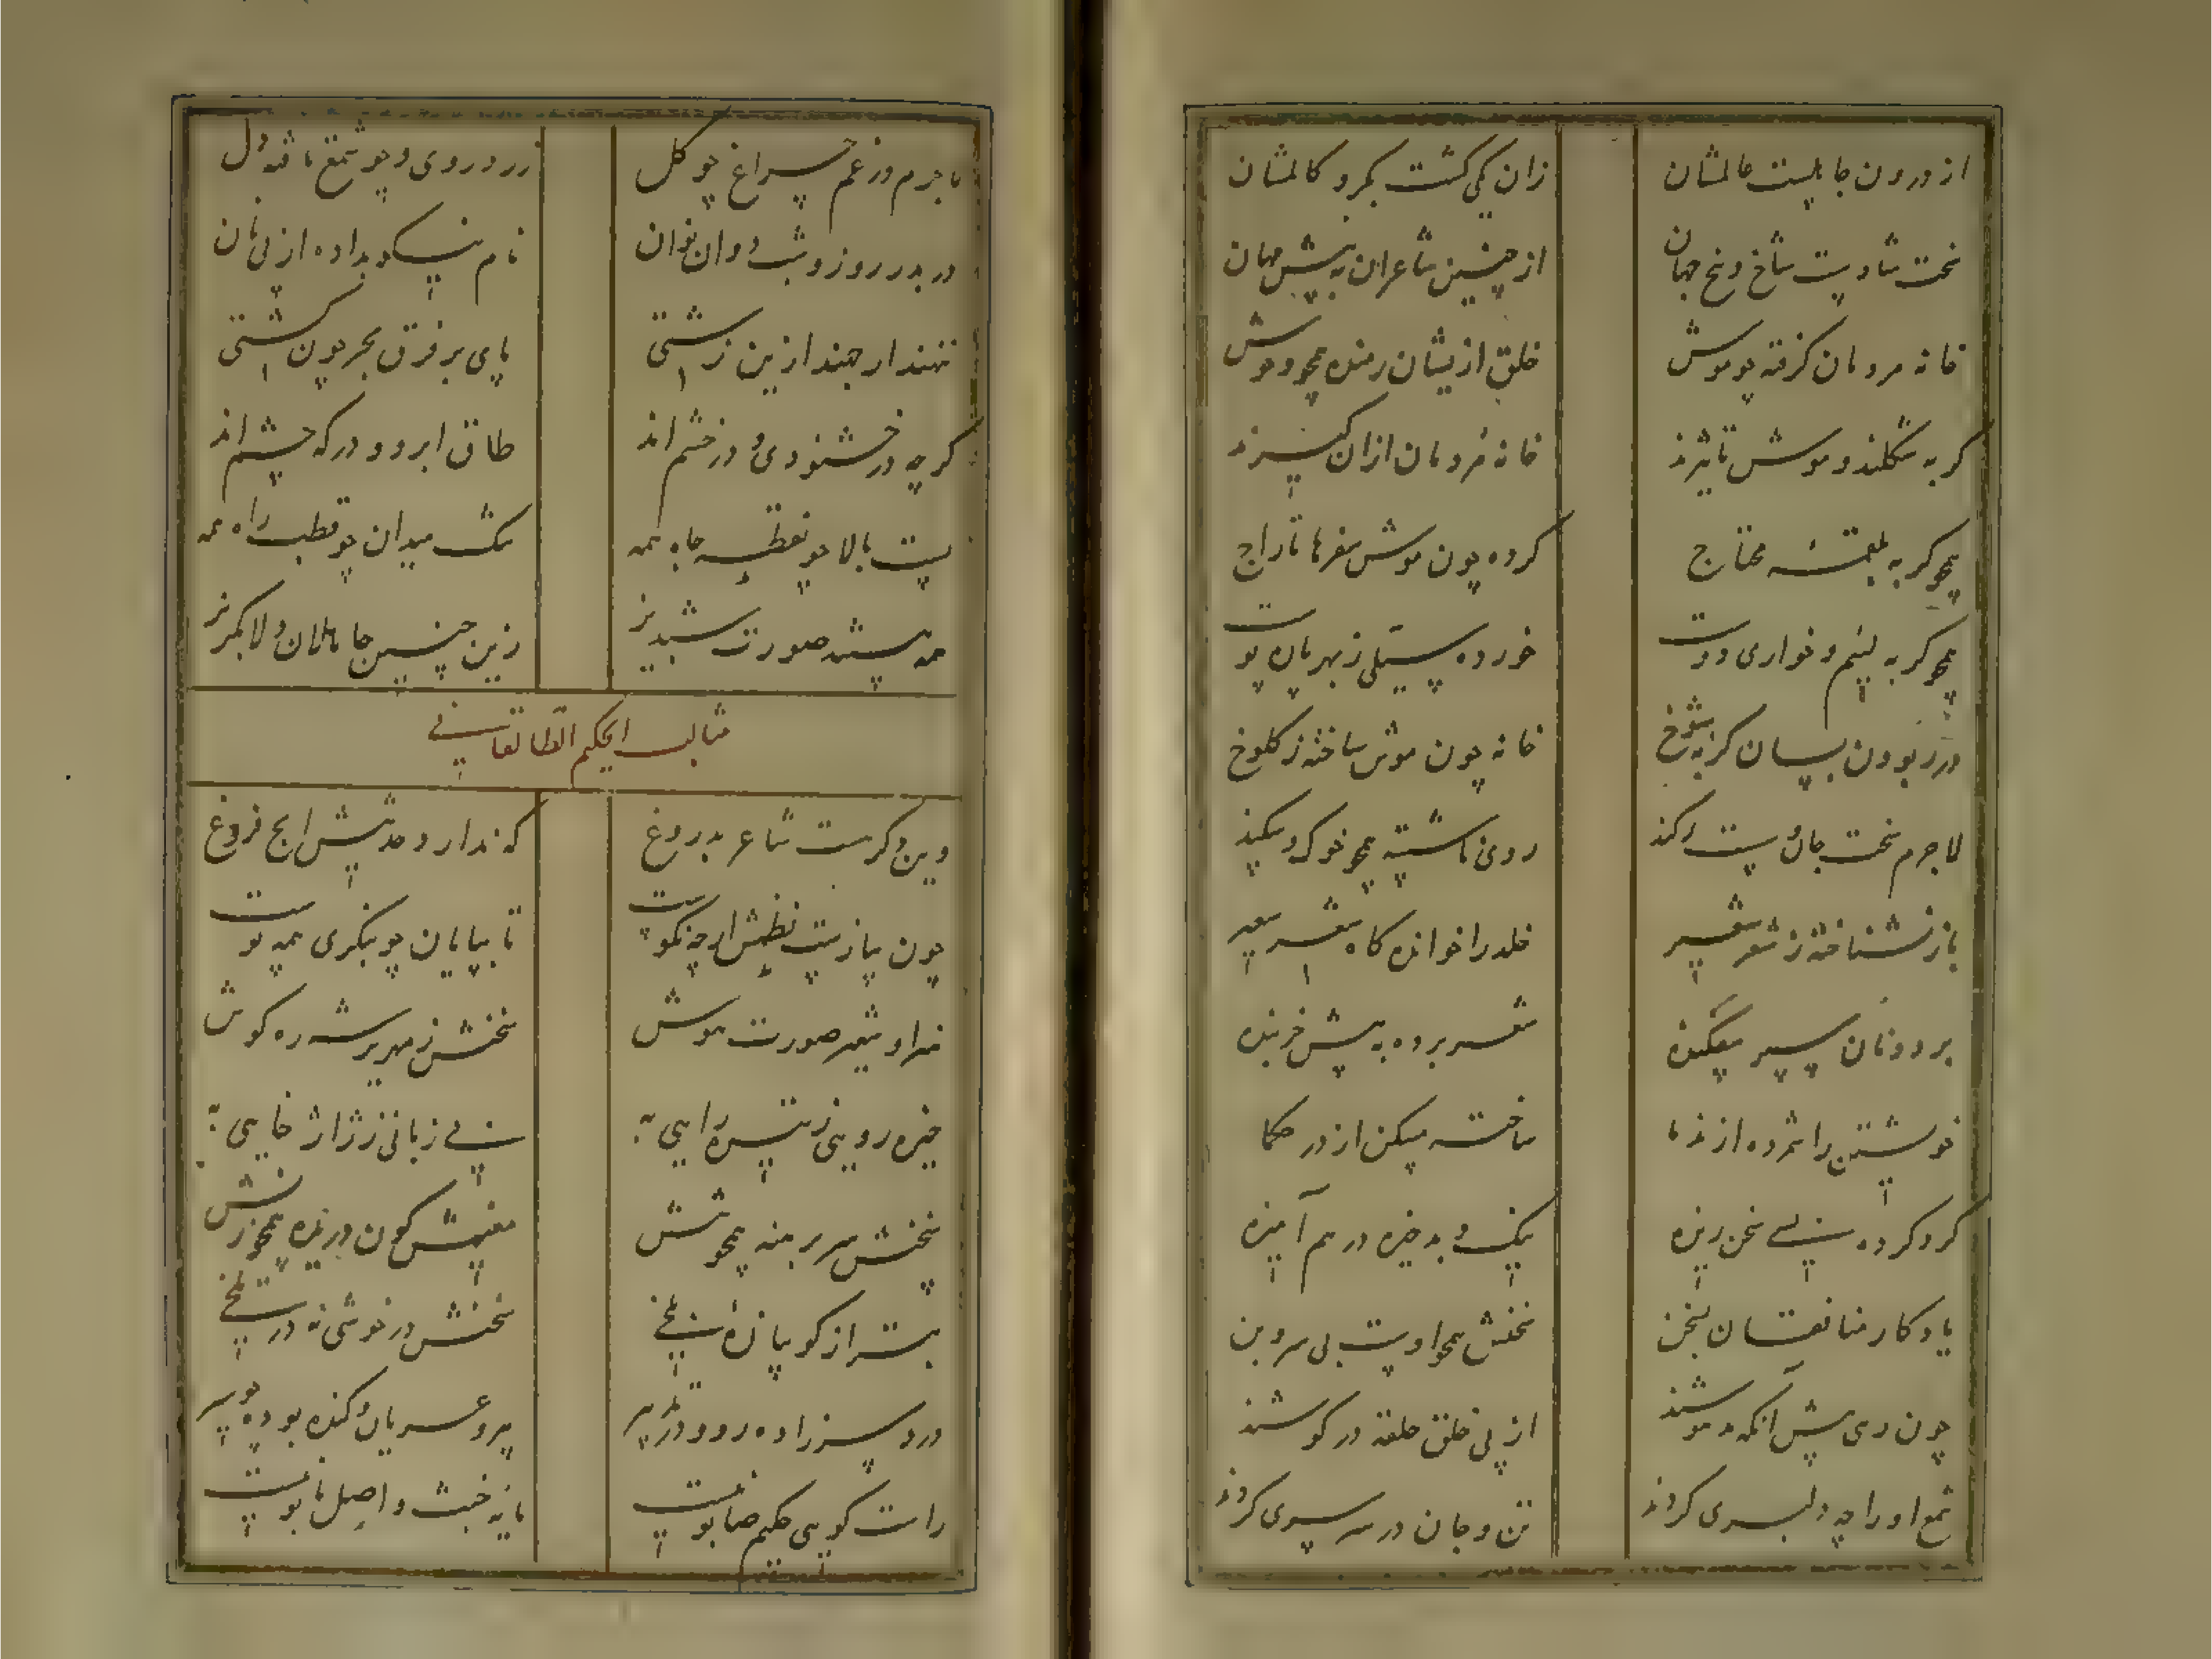 از درون جاهلیست عالمشان زان کمی گشت گمره و کالمشان
سخت شادیست شاخ و بخ جهان از چنین شاعران به پیش مهان
خانه مردمان گرفته چو موش خلق ازیشان رمنده همچو وحوش
گربه شکلند و موش تاثیرند خانه مردمان ازان گیرند
همچو گربه بلقمه محتاج کرده چون موش سفرها تاراج
همچو گربه لئیم و خواری دوست خورده سیلی ز بهر پاره پوست
در ربودن بسان گربه شوخ خانه چون موش ساخته ز کلوخ
لاجرم سخت جان و سست رگند روی ناشسته همچو خوک و سگند
باز نشناخته ز شعر شعیر خلد را خوانده گاه شعر سعیر
بر دونان سپر بیفکنده شعر برده به پیش خربنده
خویشتن را شمرده از ندما ساخته مسکن از در حکما
گرد کرده بسی سخن ریزه نیک و بد خیره در هم آمیزه
یادگار منافقان بسخن سخنش همچو اوست بی سر و بن
چون دمی پیش آنکه مدهوشند از پی خلق حلقه در گوشند
شمع او را چه دلبری کردند تن و جان در سر سری کردند
لاجرم در غم چراغ چو گل زرد روی و چو شمع تافته دل
در بدر روز و شب دوان نوان نام نیکو بداده از پی نان
ننهند ار جهند ازین زشتی پای بر فرق بحر چون کشتی
گرچه در خشنودی و در خشم اند طاق ابرو و درگه چشم اند
پست بالا چو نقطه جاه همه تنگ میدان چو قطب راه همه
همه هستند صورت شبدیز زین چنین جاهلان دلا بگریز
مثالب الحکیم الطالقانی
وین دگر هست شاعر بدروغ که ندارد حدیثش ایچ فروغ
چون پیازست نظمش ار چه نکوست تا بپایان چو بنگری همه پوست
مر او شعر صورت هوش سخنش زمهریر شه ره گوش
خیره رویی ز تیره رایی به بی زبانی ز ژاژ خایی به
سخنش سر برهنه همچو تنش معنیش کون دریده همچو زنش
بتر از گو پیازه بلخی سخنش در خوشی نه در تلخی
درد سر زاده رود در تدبیر پیر و عریان و گنده بوده چو سیر
راست گویی حکیم صابونست مایه خبث و اصل نابوست